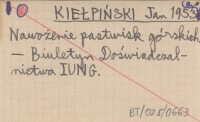 KIEŁPIŃSKI Jan 1953
Nawożenie pastwisk górskich
— Biuletyn Doświadczal-
nictwa IUNG.
BT/CUS/0663